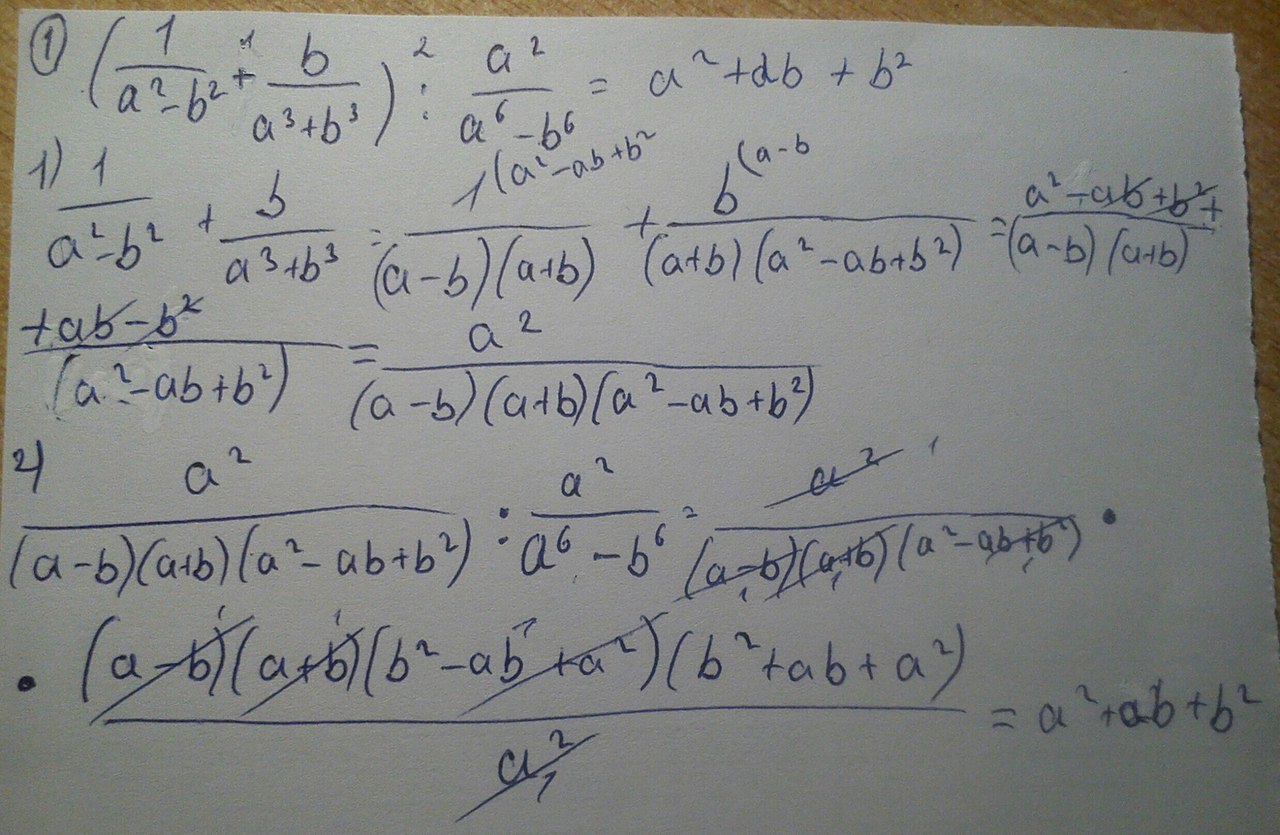 ① (1/(a²-b²) + b/(a³+b³)) : a²/(a⁶-b⁶) = a²+ab+b²
1) 1/(a²-b²) + b/(a³+b³) = 1(a²-ab+b²/((a-b)(a+b)) + b(a-b/((a+b)(a²-ab+b²)) = a²-ab+b²+/((a-b)(a+b)
+ab-b²/(a²-ab+b²) = a²/((a-b)(a+b)(a²-ab+b²))
2) a²/((a-b)(a+b)(a²-ab+b²)) : a²/(a⁶-b⁶) = a²/((a-b)(a+b)(a²-ab+b²)) ·
· (a-b)(a+b)(b²-ab+a²)(b²+ab+a²)/a² = a²+ab+b²